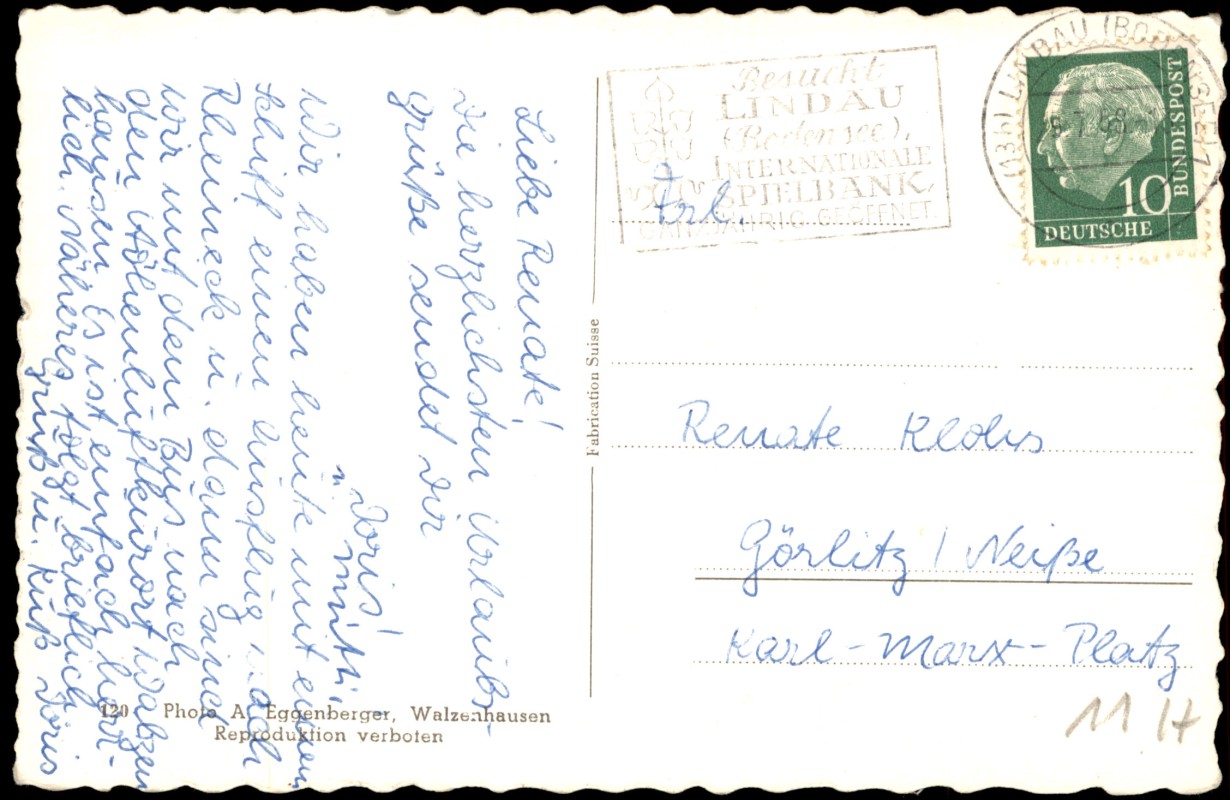 Liebe Renate!
Die herzlichsten Urlaubs-
grüße sendet dir
Doris!
u. Mutti.
Wir haben heute mit einem
Schiff einen Ausflug nach
Rheineck u. dann sind
wir mit dem Bus nach
den Höhenluftkurort Walzen
hausen. Es ist einfach herr-
lich. Näheres folgt brieflich.
Gruß u. Kuß Doris
120 Photo A. Eggenberger, Walzenhausen
Reproduktion verboten
Fabrication Suisse
Besucht
LINDAU
(Bodensee),
INTERNATIONALE
SPIELBANK,
GANZJÄHRIG GEÖFFNET
(13b) LINDAU (BODENSEE)
DEUTSCHE
BUNDESPOST
10
Frl.
Renate
Görlitz / Neiße
Karl-Marx-Platz
11 H